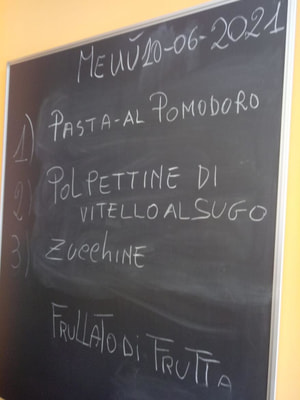 Menù 10-06-2021
1) PASTA-AL POMODORO
2) POLPETTINE DI
VITELLO AL SUGO
3) ZuccHINE
FRULLATO DI FRUTTA